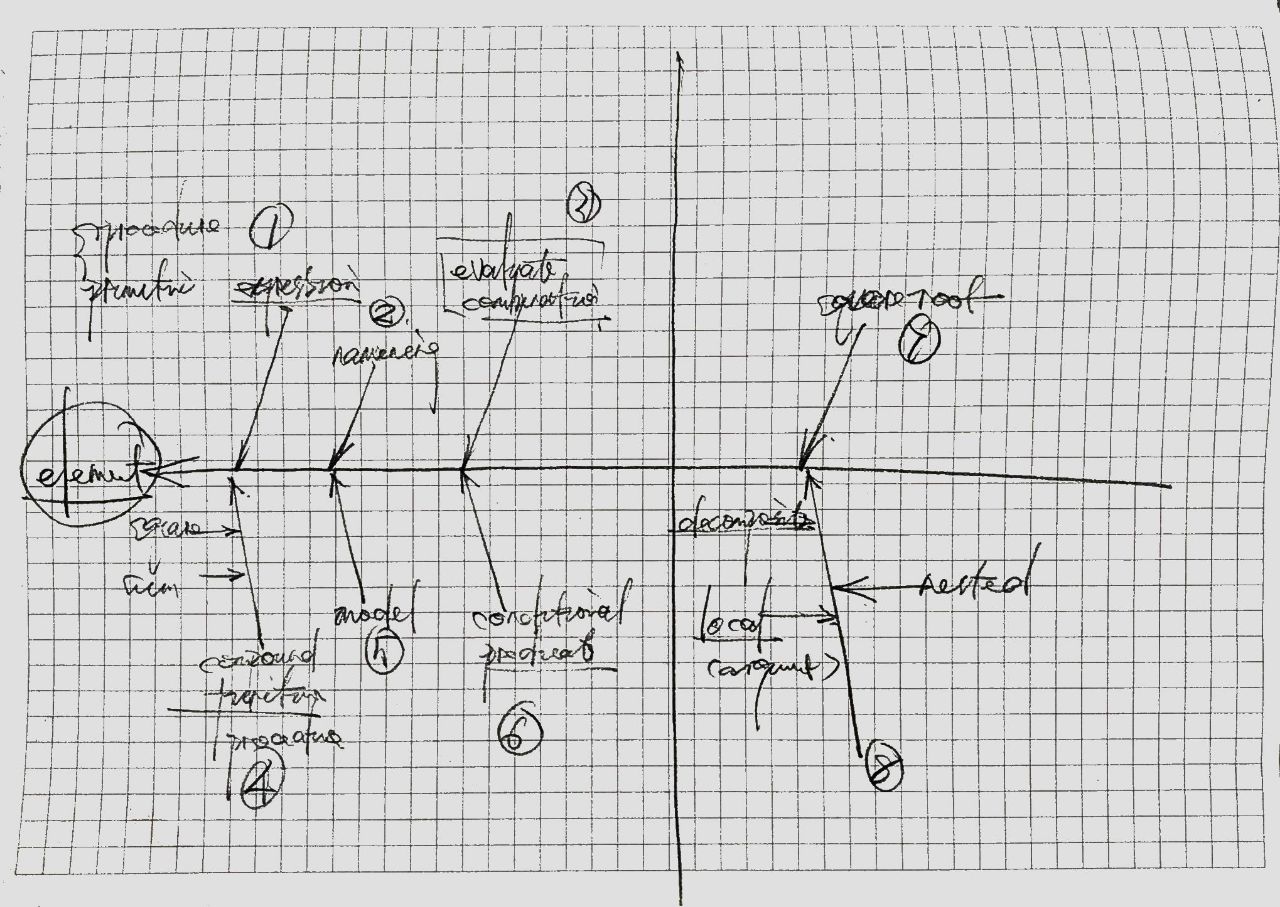 procedure
primitive
①
expression
②
naming
③
evaluate
combination
square root
⑦
element
square
sum
compound
procedure
④
model
⑤
conditional
predicate
⑥
nested
local
(argument)
⑧